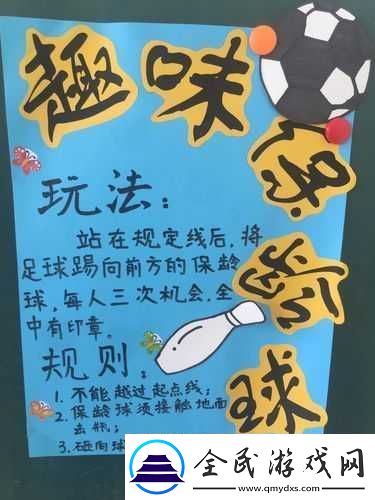 趣味保龄球
玩法：
站在规定线后，将
足球踢向前方的保龄
球，每人三次机会，全
中有印章。
规则：
1. 不能越过起点线；
2. 保龄球须接触地面
去瓶；
3. 砸向球
全民游戏网
www.qmydxs.com